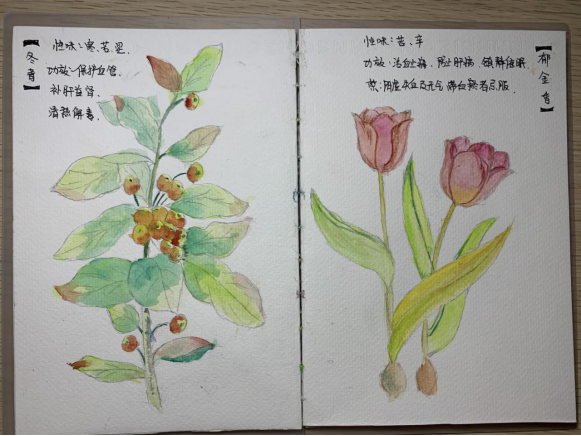 【冬青】
性味：寒、苦涩.
功效：保护血管.
补肝益肾.
清热解毒.
【郁金香】
性味：苦、辛
功效：活血止痛、防止肝病、镇静催眠
禁：阴虚失血及无气滞血瘀者忌服.